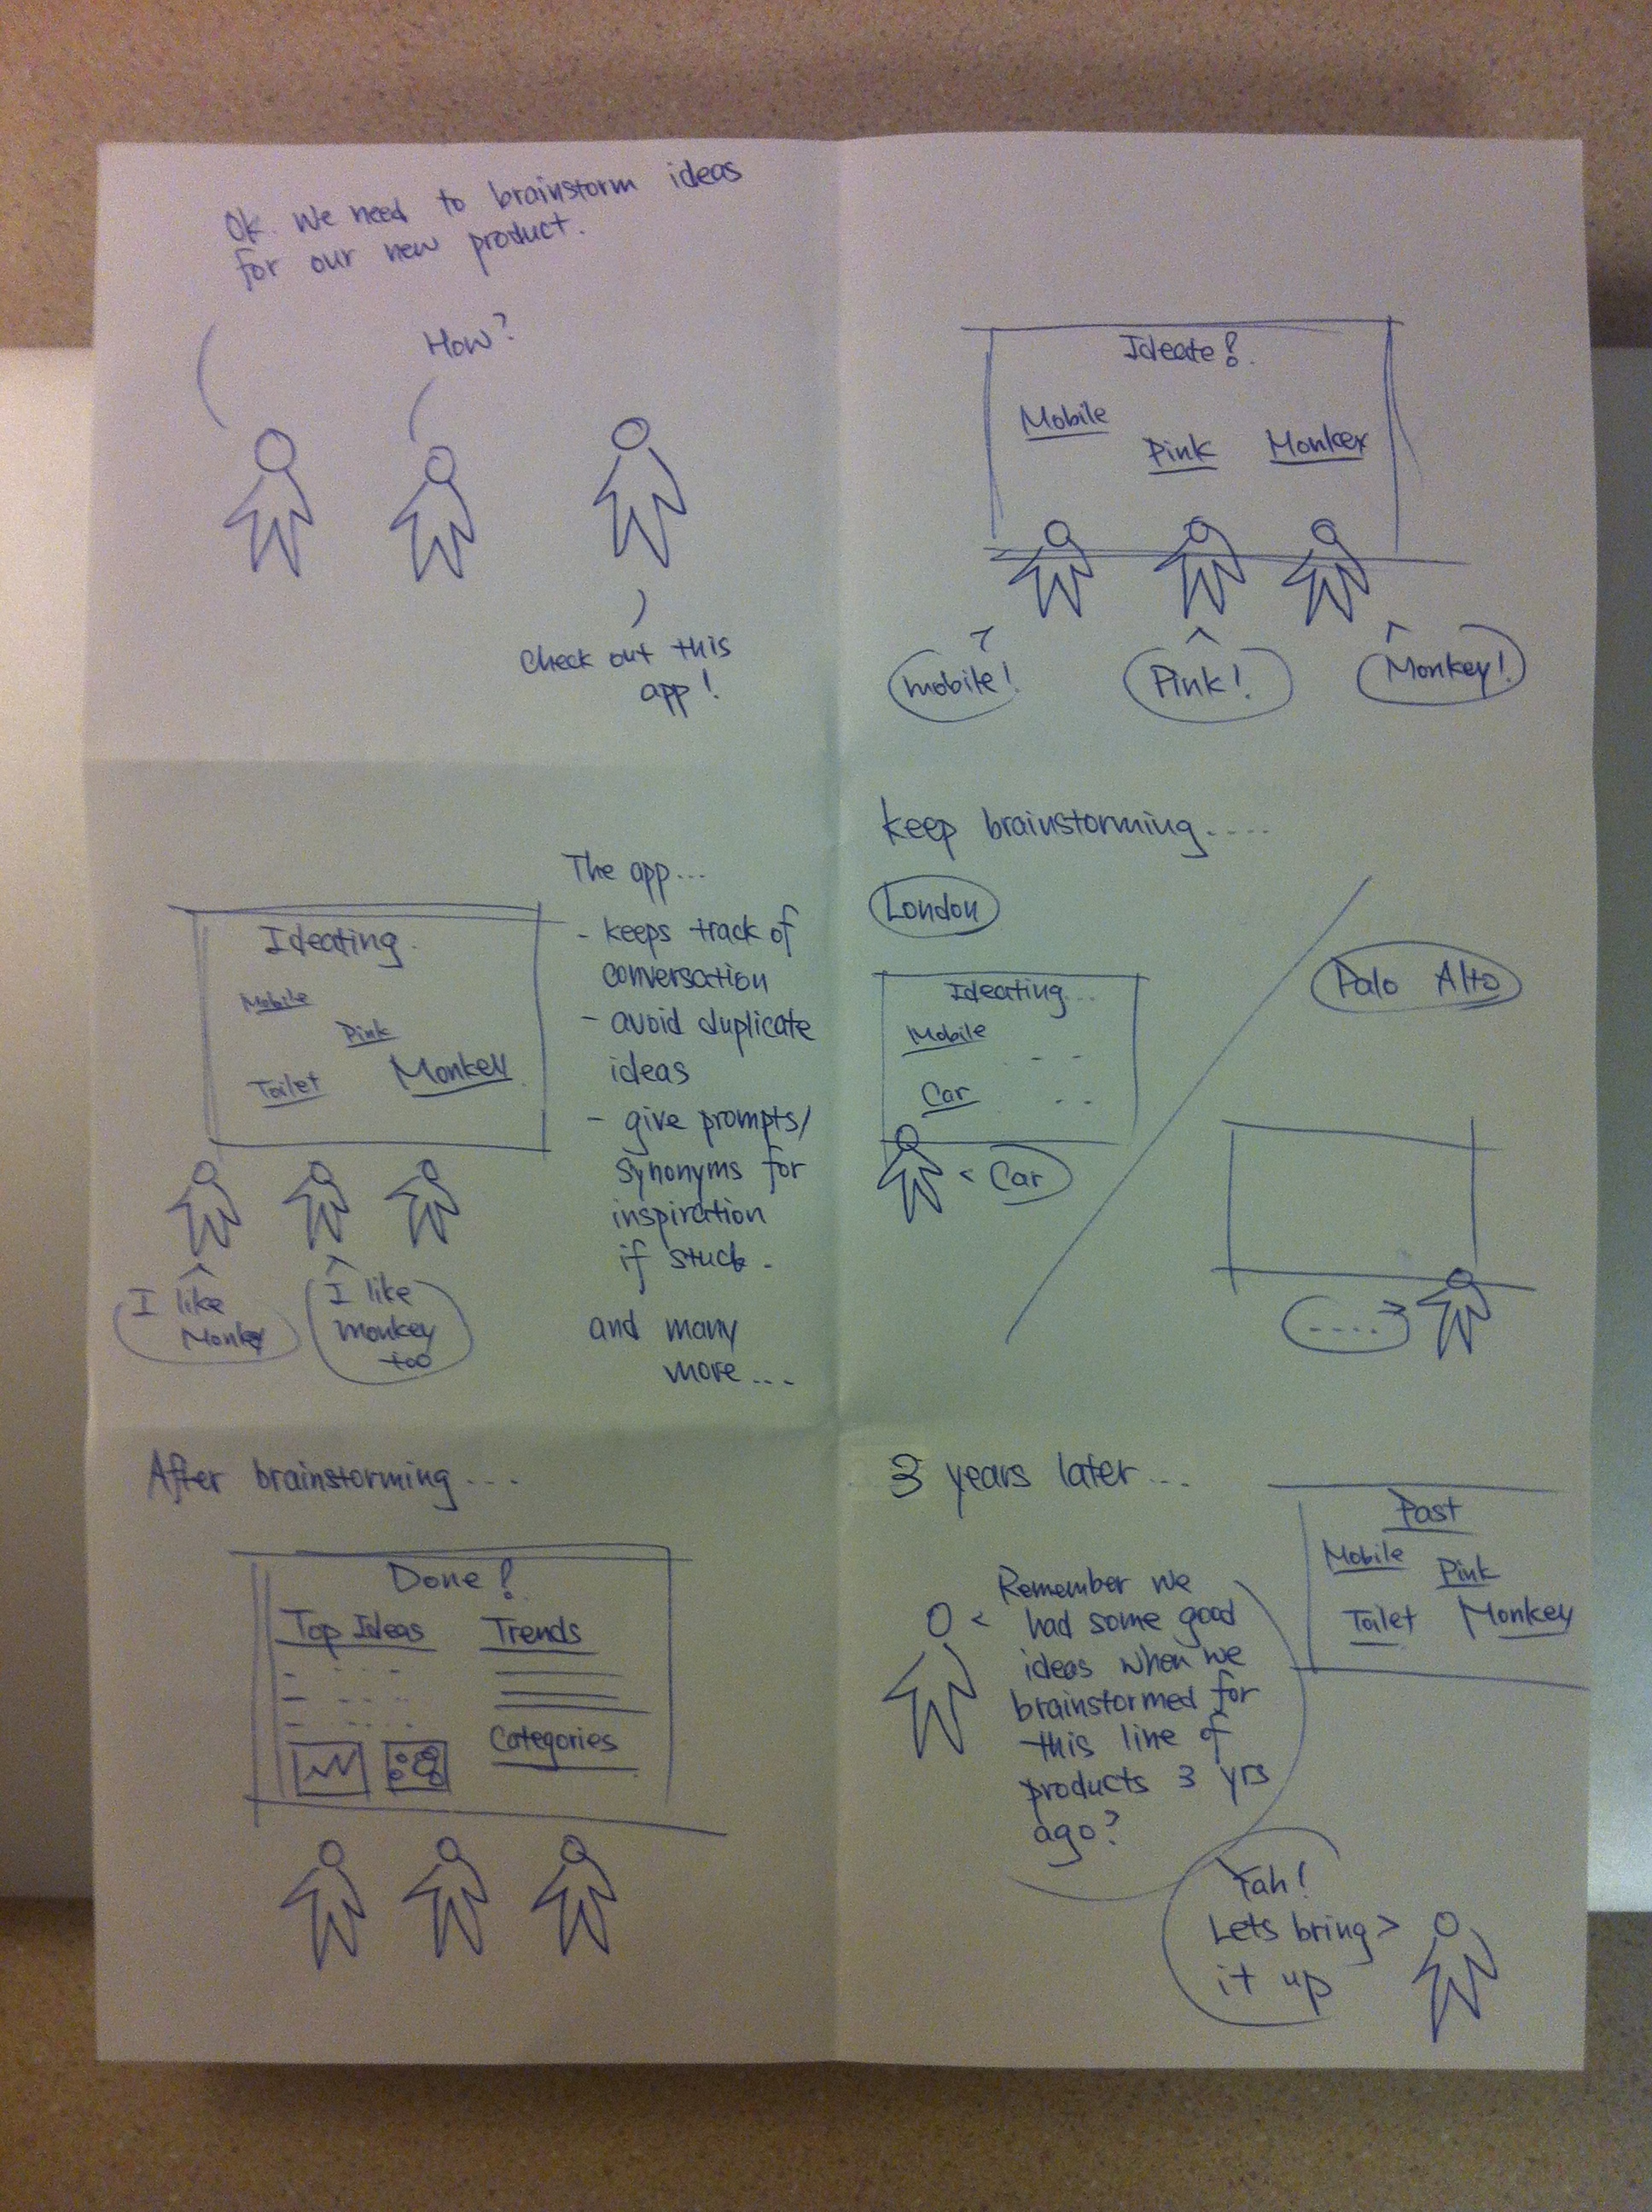 Ok. We need to brainstorm ideas
for our new product.
How?
Check out this
app!
Ideate!
Mobile
Pink
Monkey
mobile!
Pink!
Monkey!
Ideating.
Mobile
Pink
Toilet
Monkey
I like
Monkey
I like
monkey
too
The app...
- keeps track of
conversation
- avoid duplicate
ideas
- give prompts/
synonyms for
inspiration
if stuck.
and many
more...
keep brainstorming.....
London
Ideating...
Mobile
Car
Car
Palo Alto
....
After brainstorming....
Done!
Top Ideas
Trends
Categories
3 years later...
Past
Mobile
Pink
Toilet
Monkey
Remember we
had some good
ideas when we
brainstormed for
this line of
products 3 yrs
ago?
Yah!
Lets bring
it up